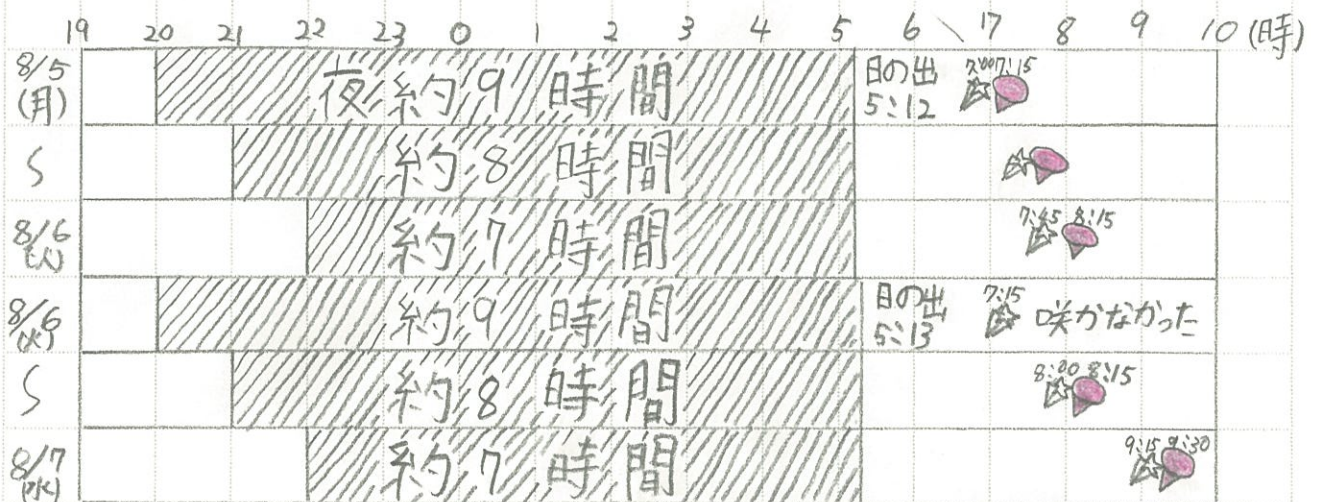 19 20 21 22 23 0 1 2 3 4 5 6 7 8 9 10 (時)
8/5
(月)
夜 約 9 時 間
日の出
5:12
7:00 7:15
約 8 時 間
8/6
(火)
約 7 時 間
7:45 8:15
8/6
(火)
約 9 時 間
日の出
5:13
7:15
咲かなかった
約 8 時 間
8:00 8:15
8/7
(水)
約 7 時 間
9:15 9:30